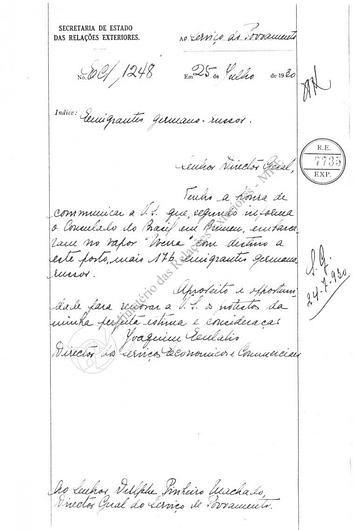 SECRETARIA DE ESTADO
DAS RELAÇÕES EXTERIORES.
Ao Serviço do Povoamento
No. EC/1248
Em 25 de Julho de 1930
Indice: Emigrantes germano-russos.
R.E.
7735
EXP.
Senhor Director Geral,
Tenho a honra de
communicar a V.S. que, segundo informa
o Consulado do Brasil em Bremen, embarca-
ram no vapor com destino a
este porto, mais 176 emigrantes germano-
russos.
Aproveito a opportuni-
dade para renovar a V.S. os protestos da
minha perfeita estima e consideração
Joaquim Eulalio
Director dos Serviços Economicos e Commerciaes
24-7-930
Ao Senhor Dulphe Pinheiro Machado,
Director Geral do Serviço de Povoamento.
Ministério das Relações Exteriores - MRE